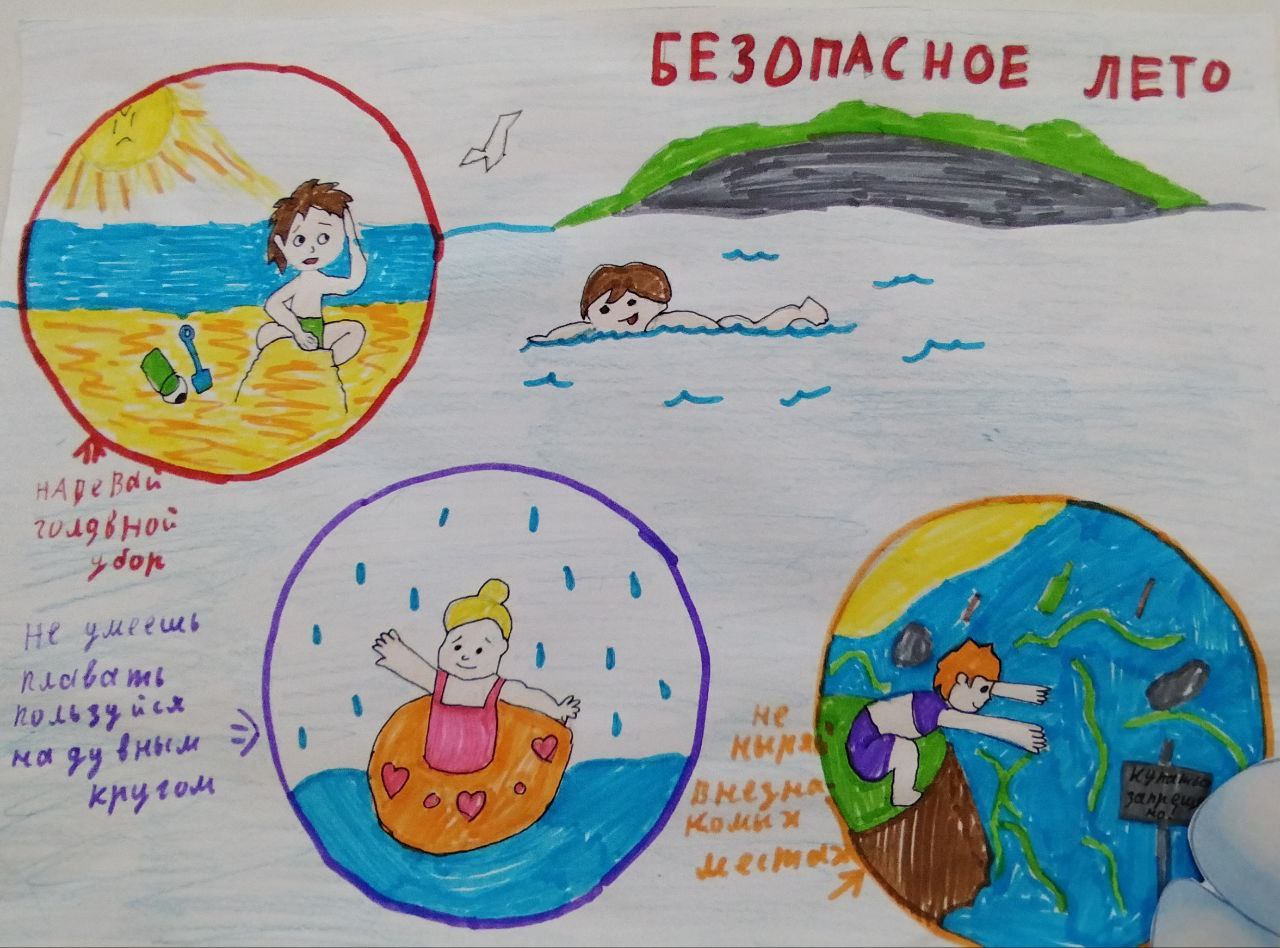 БЕЗОПАСНОЕ ЛЕТО
наревай
головной
убор
не умеешь
плавать
пользуйся
надувным
кругом
не
ныряй
внезна
комых
местах
Купаться
запреще
но!